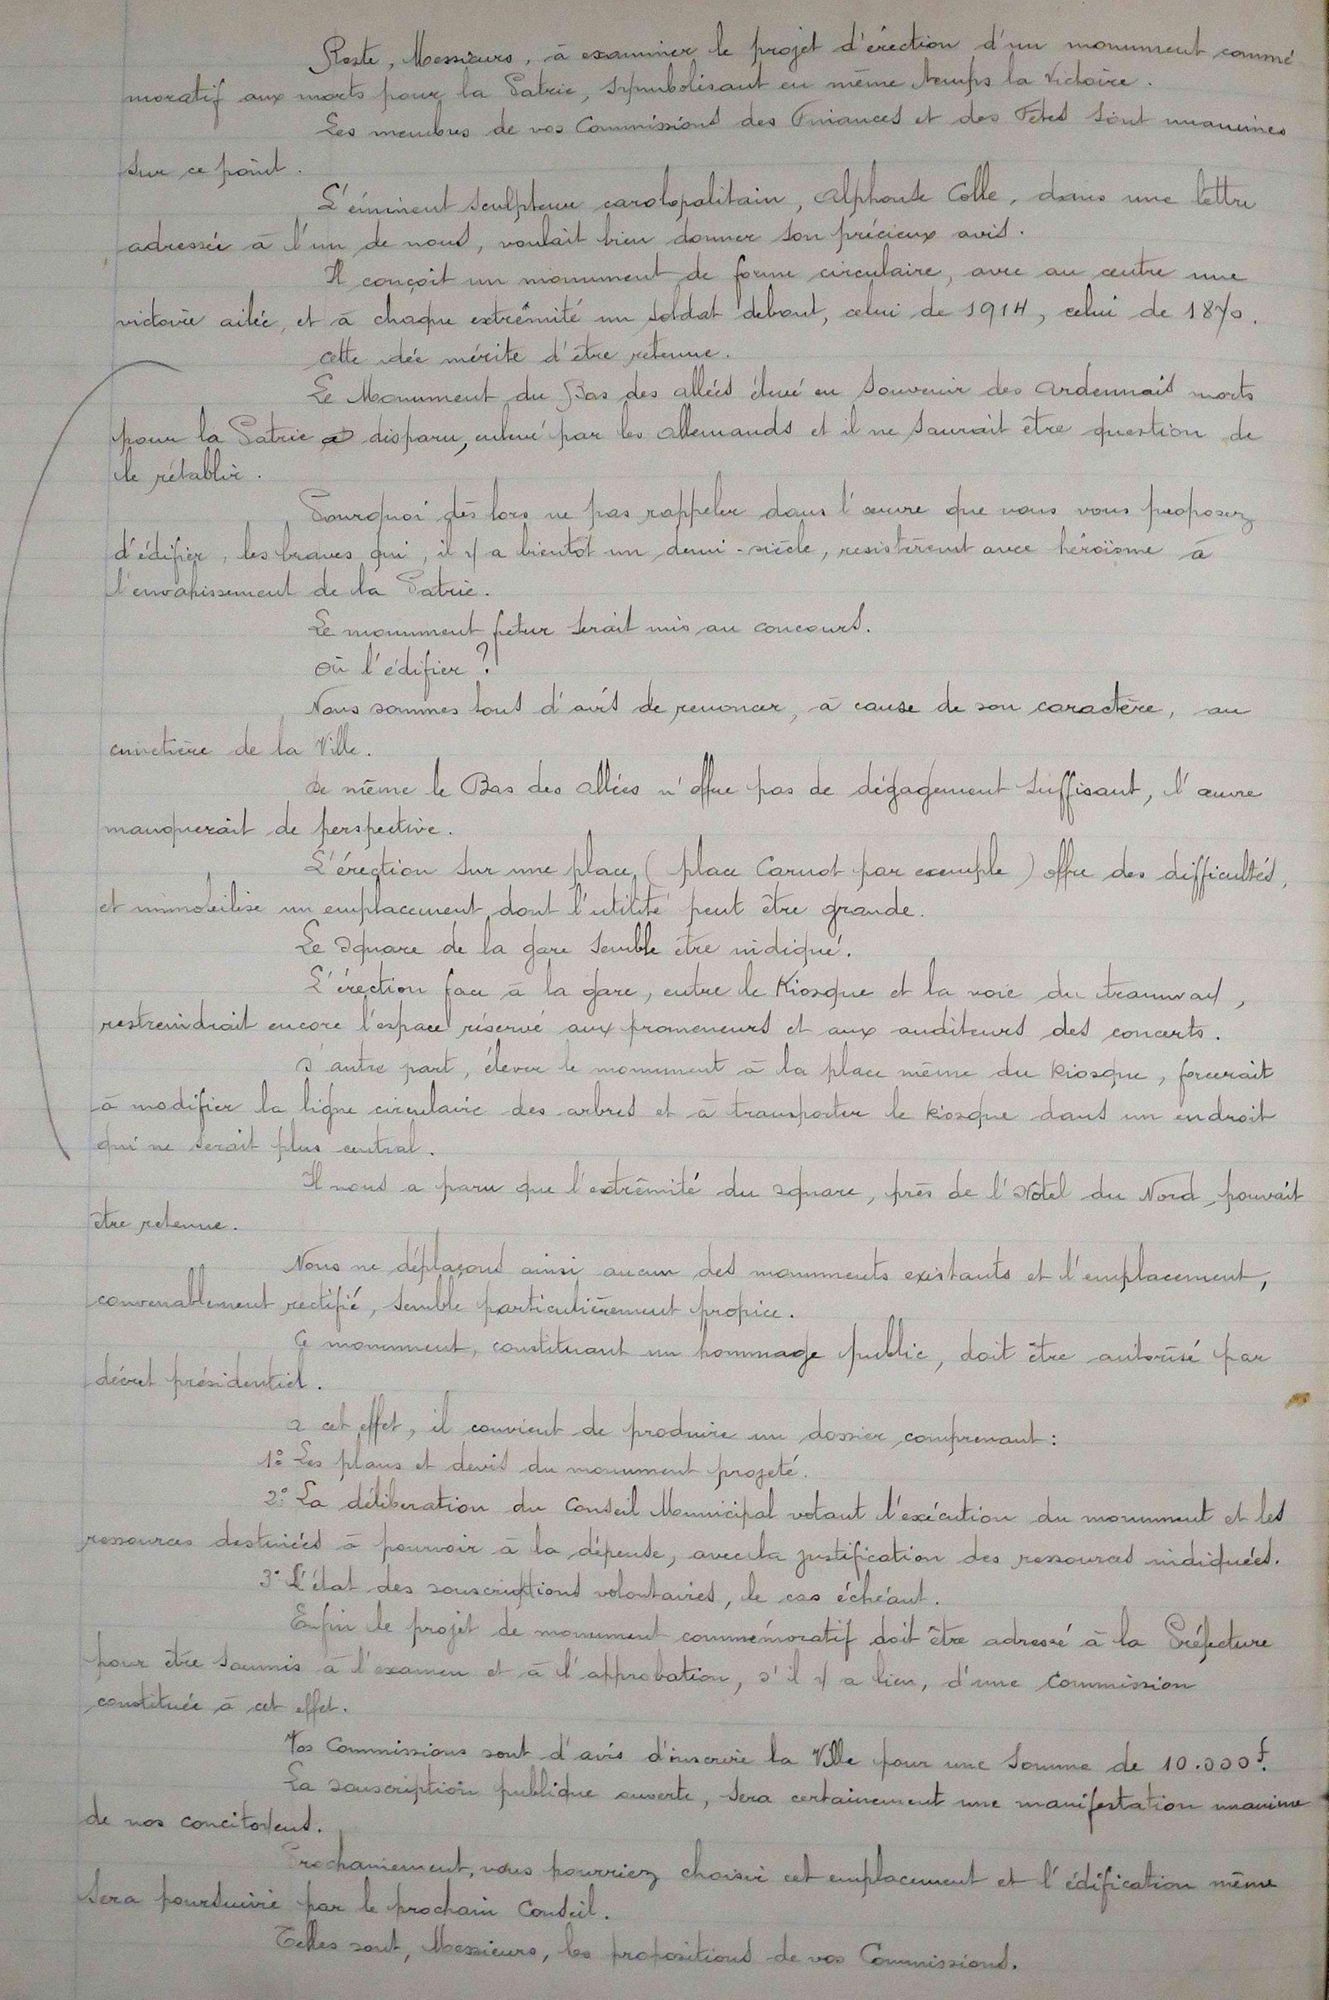 Reste, Messieurs, à examiner le projet d'érection d'un monument commé
moratif aux morts pour la Patrie, symbolisant en même temps la Victoire.
Les membres de vos Commissions des Finances et des Fêtes sont unanimes
sur ce point.
L'éminent sculpteur carolopolitain, Alphonse Colle, dans une lettre
adressée à l'un de nous, voulait bien donner son précieux avis.
Il conçoit un monument de forme circulaire, avec au centre une
victoire ailée, et à chaque extrêmité un soldat debout, celui de 1914, celui de 1870.
Cette idée mérite d'être retenue.
Le Monument du Bas des Allées élevé en souvenir des Ardennais morts
pour la Patrie a disparu, enlevé par les Allemands et il ne saurait être question de
le rétablir.
Pourquoi dès lors ne pas rappeler dans l'œuvre que vous vous proposez
d'édifier, les braves qui, il y a bientôt un demi-siècle, resistèrent avec héroïsme à
l'envahissement de la Patrie.
Le monument futur serait mis au concours.
Où l'édifier ?
Nous sommes tous d'avis de renoncer, à cause de son caractère, au
cimetière de la Ville.
De même le Bas des Allées n'offre pas de dégagement suffisant, l'œuvre
manquerait de perspective.
L'érection sur une place (place Carnot par exemple) offre des difficultés,
et immobilise un emplacement dont l'utilité peut être grande.
Le Square de la gare semble être indiqué.
L'érection face à la gare, entre le Kiosque et la voie du tramway,
restreindrait encore l'espace réservé aux promeneurs et aux auditeurs des concerts.
D'autre part, élever le monument à la place même du Kiosque, forcerait
à modifier la ligne circulaire des arbres et à transporter le Kiosque dans un endroit
qui ne serait plus central.
Il nous a paru que l'extrêmité du square, près de l'Hôtel du Nord pouvait
être retenue.
Nous ne déplaçons ainsi aucun des monuments existants et l'emplacement,
convenablement rectifié, semble particulièrement propice.
Ce monument, constituant un hommage public, doit être autorisé par
décret présidentiel.
A cet effet, il convient de produire un dossier comprenant :
1° Les plans et devis du monument projeté.
2° La délibération du Conseil Municipal votant l'exécution du monument et les
ressources destinées à pouvoir à la dépense, avec la justification des ressources indiquées.
3° L'état des souscriptions volontaires, le cas échéant.
Enfin le projet de monument commémoratif doit être adressé à la Préfecture
pour être soumis à l'examen et à l'approbation, s'il y a lieu, d'une Commission
constituée à cet effet.
Vos Commissions sont d'avis d'inscrire la Ville pour une somme de 10.000 f.
La souscription publique ouverte, sera certainement une manifestation unanime
de nos concitoyens.
Prochainement, vous pourriez choisir cet emplacement et l'édification même
sera poursuivie par le prochain Conseil.
Telles sont, Messieurs, les propositions de vos Commissions.